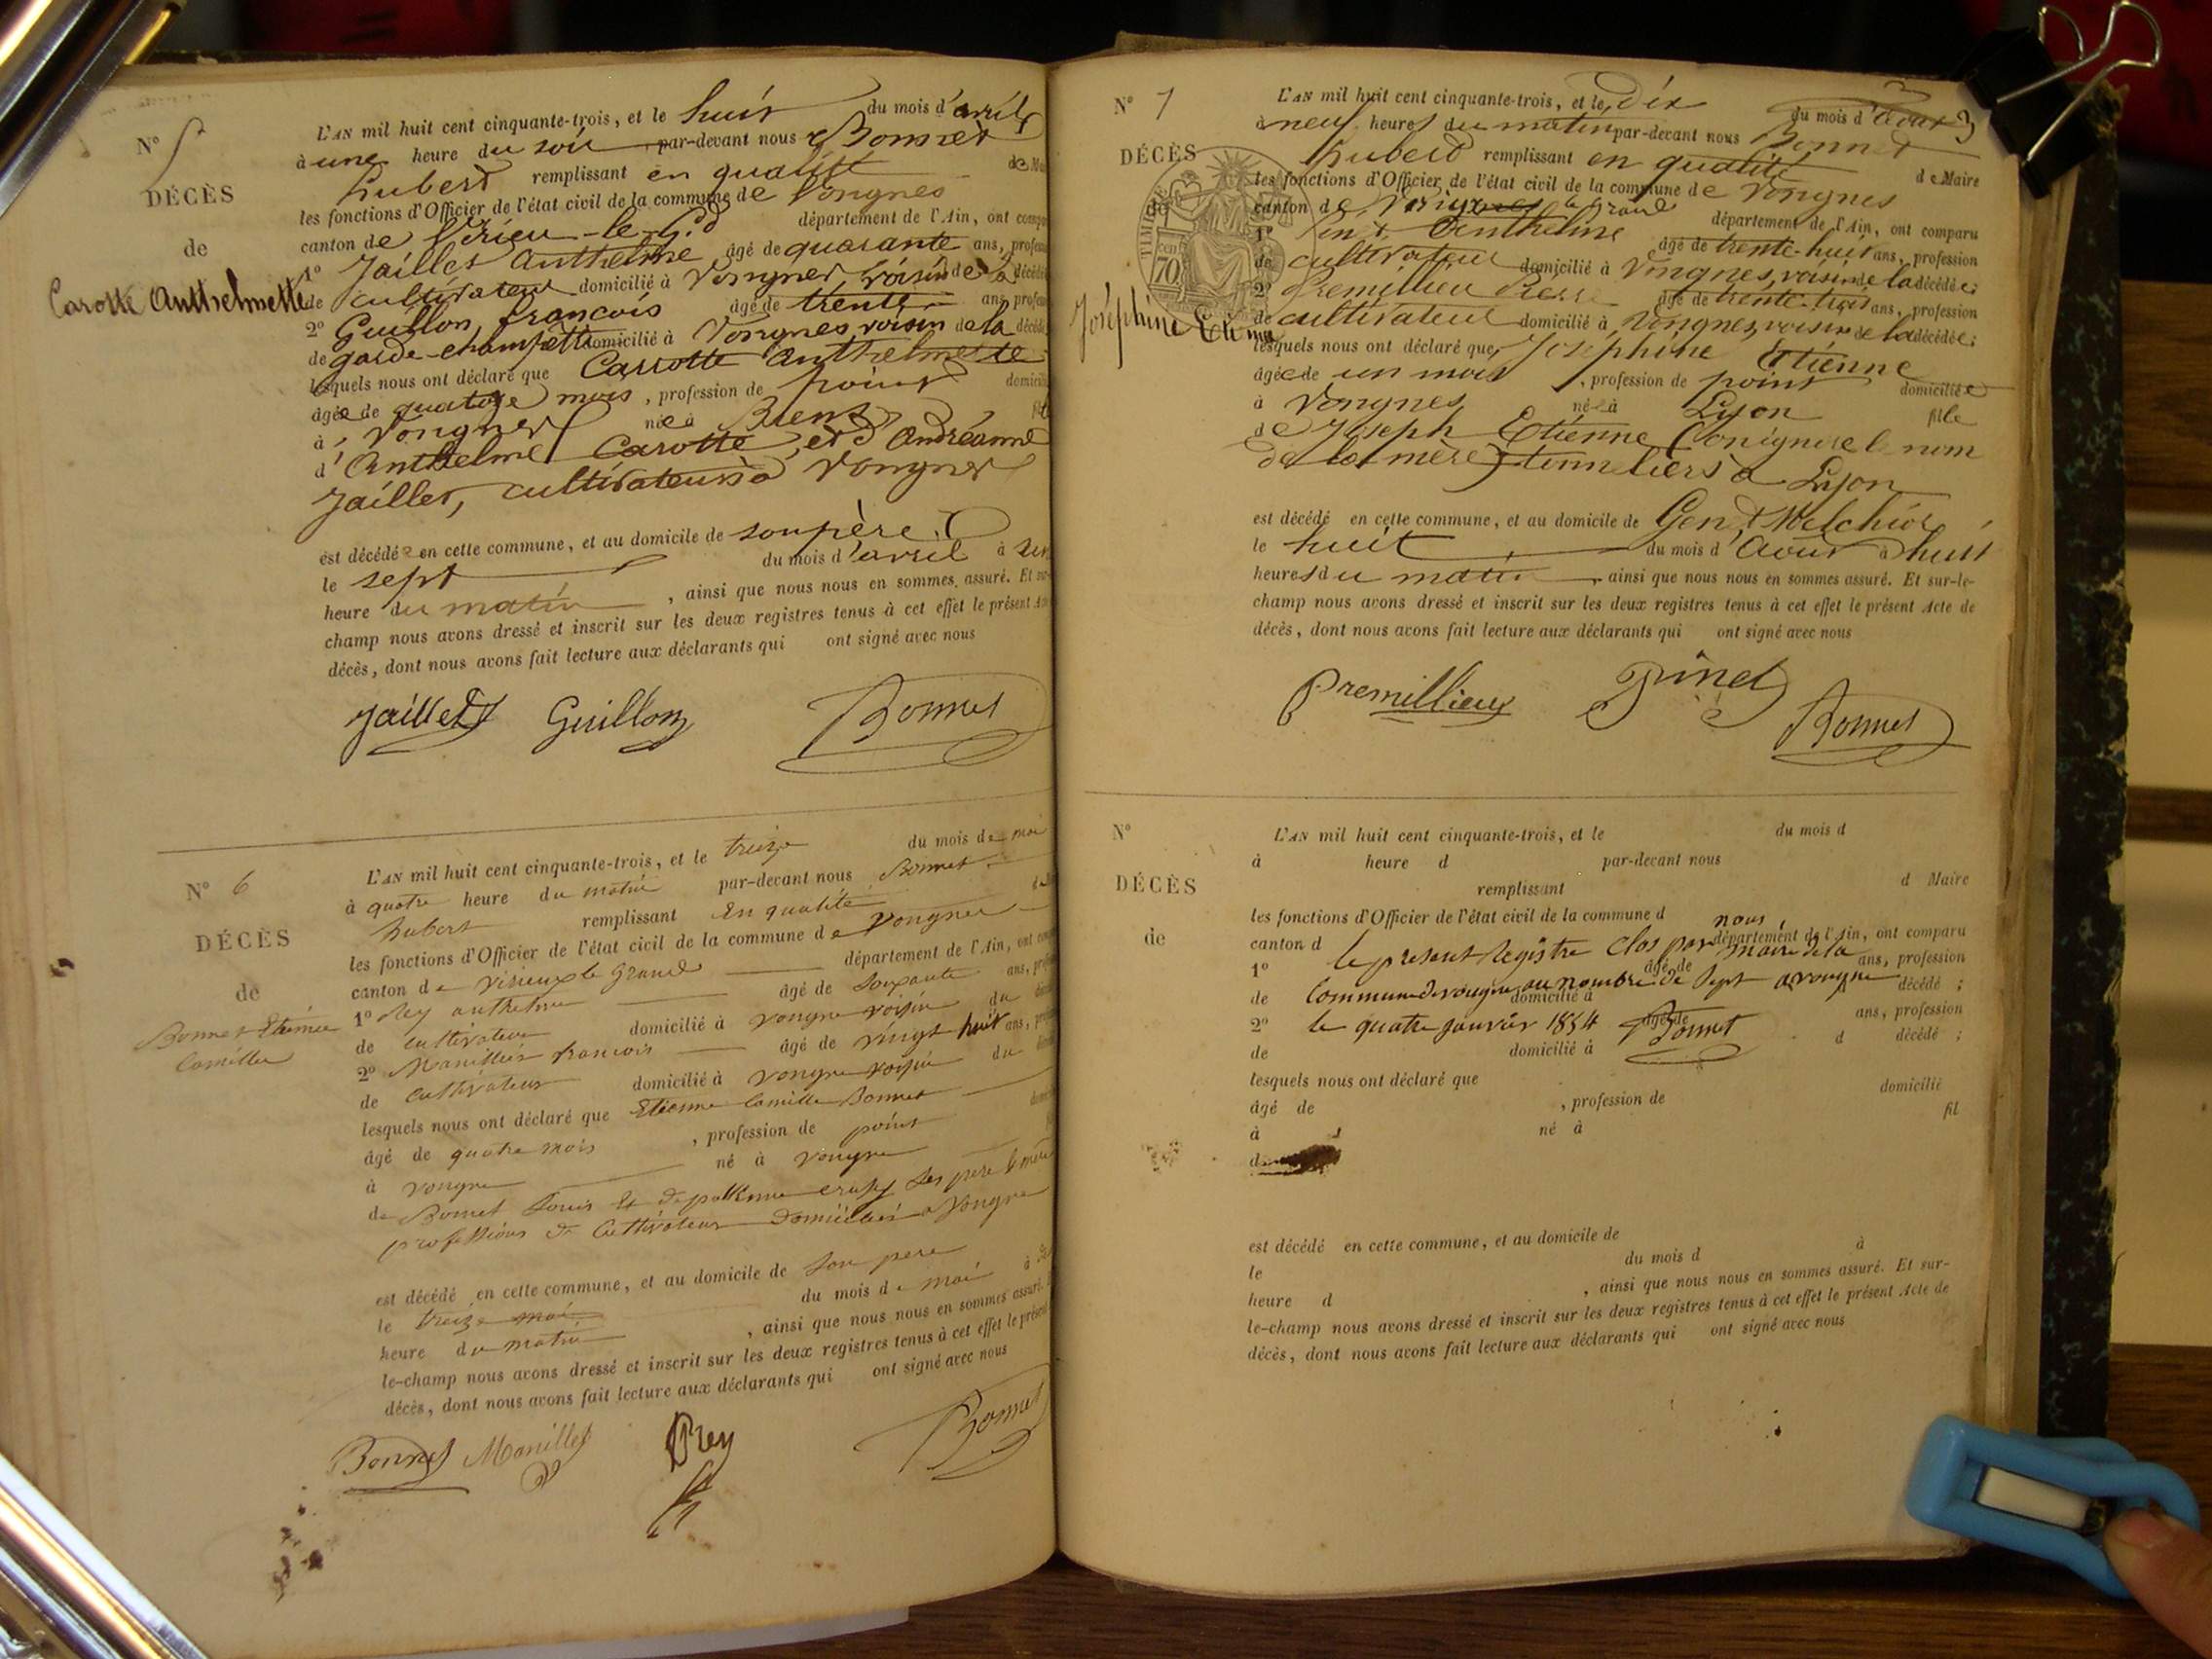 N° 5
DÉCÈS
de
Carotte Anthelmette
L'AN mil huit cent cinquante-trois, et le huit du mois d'avril
à une heure du soir par-devant nous Bonnet
hubert remplissant en qualité de Maire
les fonctions d'Officier de l'état civil de la commune de Vongnes
canton de Virieu-le-Gd département de l'Ain, ont comparu
1° Jaillet Anthelme âgé de quarante ans, profession
de cultivateur domicilié à Vongnes, voisin de la décédée
2° Guillon, françois âgé de trente ans, profession
de garde-champêtre domicilié à Vongnes, voisin de la décédée
lesquels nous ont déclaré que Carrotte Anthelmette
âgée de quatorze mois, profession de point domicilié
à Vongnes née à Brens fille
d'Anthelme Carotte, et d'Andréanne
Jaillet, cultivateurs à Vongnes
est décédée en cette commune, et au domicile de son père
le sept du mois d'avril à
heure du matin, ainsi que nous nous en sommes assuré. Et sur-le-
champ nous avons dressé et inscrit sur les deux registres tenus à cet effet le présent Acte
décès, dont nous avons fait lecture aux déclarants qui ont signé avec nous
Jaillet Guillon Bonnet
N° 6
DÉCÈS
de
Bonnet Etienne
Camille
L'AN mil huit cent cinquante-trois, et le treize du mois de mai
à quatre heure du matin par-devant nous Bonnet
hubert remplissant En qualité de Maire
les fonctions d'Officier de l'état civil de la commune de Vongnes
canton de Virieux le grand département de l'Ain, ont comparu
1° Rey anthelme âgé de soixante ans, profession
de cultivateur domicilié à vongne voisin du décédé
2° Manillier francois âgé de vingt huit ans, profession
de cultivateur domicilié à vongne voisin du décédé
lesquels nous ont déclaré que Etienne Camille Bonnet
âgé de quatre mois, profession de point
à vongne né à vongne
de Bonnet Louis et ses pere & mere
professions de Cultivateur domicilies a Vongne
est décédé en cette commune, et au domicile de son pere
le treize mai du mois de mai à
heure du matin, ainsi que nous nous en sommes assuré.
le-champ nous avons dressé et inscrit sur les deux registres tenus à cet effet le présent
décès, dont nous avons fait lecture aux déclarants qui ont signé avec nous
Bonnet Manillet Rey Bonnet
N° 7
DÉCÈS
de
TIMBRE
70
Joséphine Etienne
L'AN mil huit cent cinquante-trois, et le Dix du mois d'Aout
à neuf heures du matin par-devant nous Bonnet
hubert remplissant en qualité de Maire
les fonctions d'Officier de l'état civil de la commune de Vongnes
canton de le Grand département de l'Ain, ont comparu
1° Anthelme âgé de trente-huit ans, profession
de cultivateur domicilié à Vongnes, voisin de la décédée;
2° Premillieu Pierre âgé de trente-trois ans, profession
de cultivateur domicilié à Vongnes, voisin de la décédée;
lesquels nous ont déclaré que Joséphine Etienne
âgée de un mois, profession de point domiciliée
à Vongnes née à Lyon fille
de Joseph Etienne, nom
de la mère) à Lyon
est décédé en cette commune, et au domicile de Genet Melchior
le huit du mois d'Aout à huit
heures du matin, ainsi que nous nous en sommes assuré. Et sur-le-
champ nous avons dressé et inscrit sur les deux registres tenus à cet effet le présent Acte de
décès, dont nous avons fait lecture aux déclarants qui ont signé avec nous
Premillieu Pinet Bonnet
N°
DÉCÈS
de
L'AN mil huit cent cinquante-trois, et le du mois d
à heure d par-devant nous
remplissant d Maire
les fonctions d'Officier de l'état civil de la commune d
canton d département de l'Ain, ont comparu
1° âgé de ans, profession
de domicilié à décédé ;
2° âgé de ans, profession
de domicilié à d décédé ;
le present registre clos par nous maire de la
commune de vongne au nombre de sept a vongne
le quatre janvier 1854 Bonnet
lesquels nous ont déclaré que
âgé de , profession de domicilié
à né à fil
d
est décédé en cette commune, et au domicile de
le du mois d à
heure d , ainsi que nous nous en sommes assuré. Et sur-
le-champ nous avons dressé et inscrit sur les deux registres tenus à cet effet le présent Acte de
décès, dont nous avons fait lecture aux déclarants qui ont signé avec nous